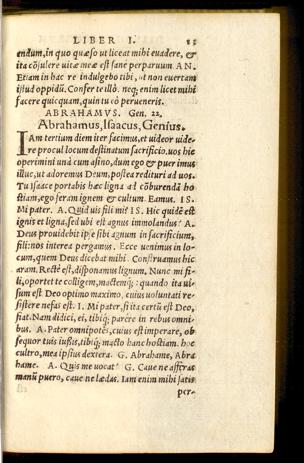 LIBER I. 23
endum, in quo quæso ut liceat mihi evadere, &
ita cõsulere vitæ meæ est sane perparuum. AN.
Etiam in hac re indulgebo tibi, ut non evertam
istud oppidũ. Confer te illò. neq; enim licet mihi
facere quicquam, quin tu eò perueneris.
ABRAHAMVS. Gen. 22.
Abrahamus, Isaacus, Genius.
IAm tertium diem iter facimus, et uideor uide-
re procul locum destinatum sacrificio. uos hic
operimini unà cum asino, dum ego & puer imus
illuc, ut adoremus Deum, postea redituri ad uos.
Tu Isaace portabis hæc ligna ad cõburendã ho
stiam, ego feram ignem & cultrum. Eamus. IS.
Mi pater. A. Quid uis fili mi? IS. Hic quidẽ est
ignis et ligna, sed ubi est agnus immolandus? A.
Deus prouidebit ipse sibi agnum in sacrificium,
fili: nos interea pergamus. Ecce uenimus in lo-
cum, quem Deus dicebat mihi. Construamus hic
aram. Rectè est, disponamus lignum. Nunc mi fi-
li, oportet te colligem, mactemq;: quando ita ui-
sum est Deo optimo maximo, cuius uoluntati re-
sistere nefas est. I. Mi pater, si ita certũ est Deo,
fiat. Nam didici, ei, tibiq; parêre in rebus omni-
bus. A. Pater omnipotẽs, cuius est imperare, ob
sequor tuis iußis, tibiq; macto hanc hostiam. hoc
cultro, mea ipsius dextera. G. Abrahame, Abra
hame. A. Quis me uocat? G. Caue ne afferas
manũ puero, caue ne lædas. Iam enim mihi satis
per-